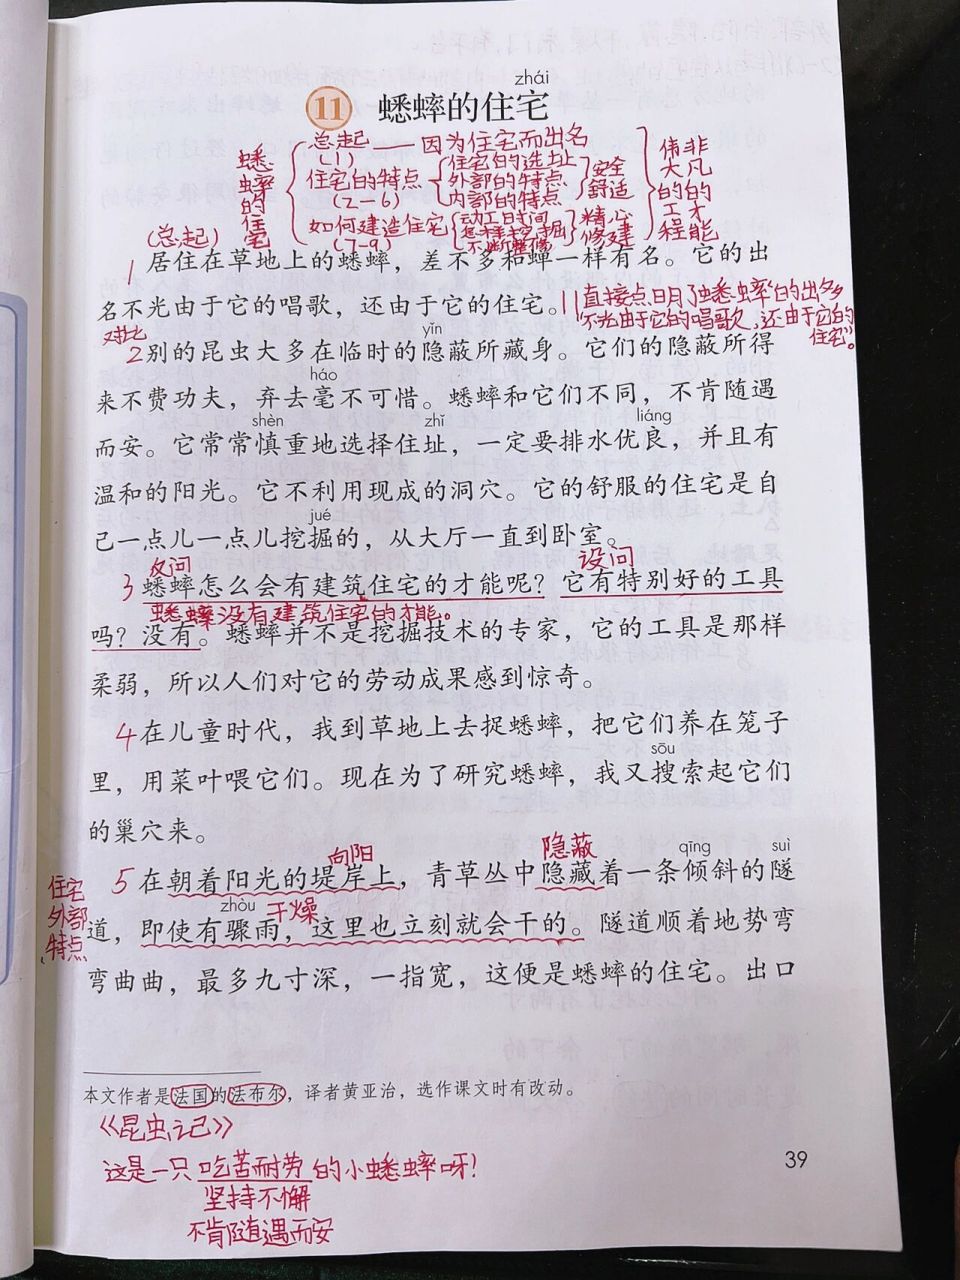 zhái
11 蟋蟀的住宅
蟋蟀的住宅
总起——因为住宅而出名
(1)
住宅的特点
(2-6)
住宅的选址
外部的特点
内部的特点
安全
舒适
如何建造住宅
(7-9)
动工时间
怎样挖掘
不断整修
精心
修建
伟大的工程
非凡的才能
(总起)
1 居住在草地上的蟋蟀，差不多和蝉一样有名。它的出
名不光由于它的唱歌，还由于它的住宅。
直接点明了蟋蟀“的出名
不光由于它的唱歌，还由于它的
住宅”。
对比
yǐn
2 别的昆虫大多在临时的隐蔽所藏身。它们的隐蔽所得
háo
来不费功夫，弃去毫不可惜。蟋蟀和它们不同，不肯随遇
shèn zhǐ liáng
而安。它常常慎重地选择住址，一定要排水优良，并且有
温和的阳光。它不利用现成的洞穴。它的舒服的住宅是自
jué
己一点儿一点儿挖掘的，从大厅一直到卧室。
反问 设问
3 蟋蟀怎么会有建筑住宅的才能呢？它有特别好的工具
蟋蟀没有建筑住宅的才能。
吗？没有。蟋蟀并不是挖掘技术的专家，它的工具是那样
柔弱，所以人们对它的劳动成果感到惊奇。
4 在儿童时代，我到草地上去捉蟋蟀，把它们养在笼子
sōu
里，用菜叶喂它们。现在为了研究蟋蟀，我又搜索起它们
的巢穴来。
向阳 隐蔽 qīng suì
5 在朝着阳光的堤岸上，青草丛中隐藏着一条倾斜的隧
住宅
外部
特点
zhòu 干燥
道，即使有骤雨，这里也立刻就会干的。隧道顺着地势弯
弯曲曲，最多九寸深，一指宽，这便是蟋蟀的住宅。出口
本文作者是法国的法布尔，译者黄亚治，选作课文时有改动。
《昆虫记》
这是一只吃苦耐劳的小蟋蟀呀！
坚持不懈
不肯随遇而安
39